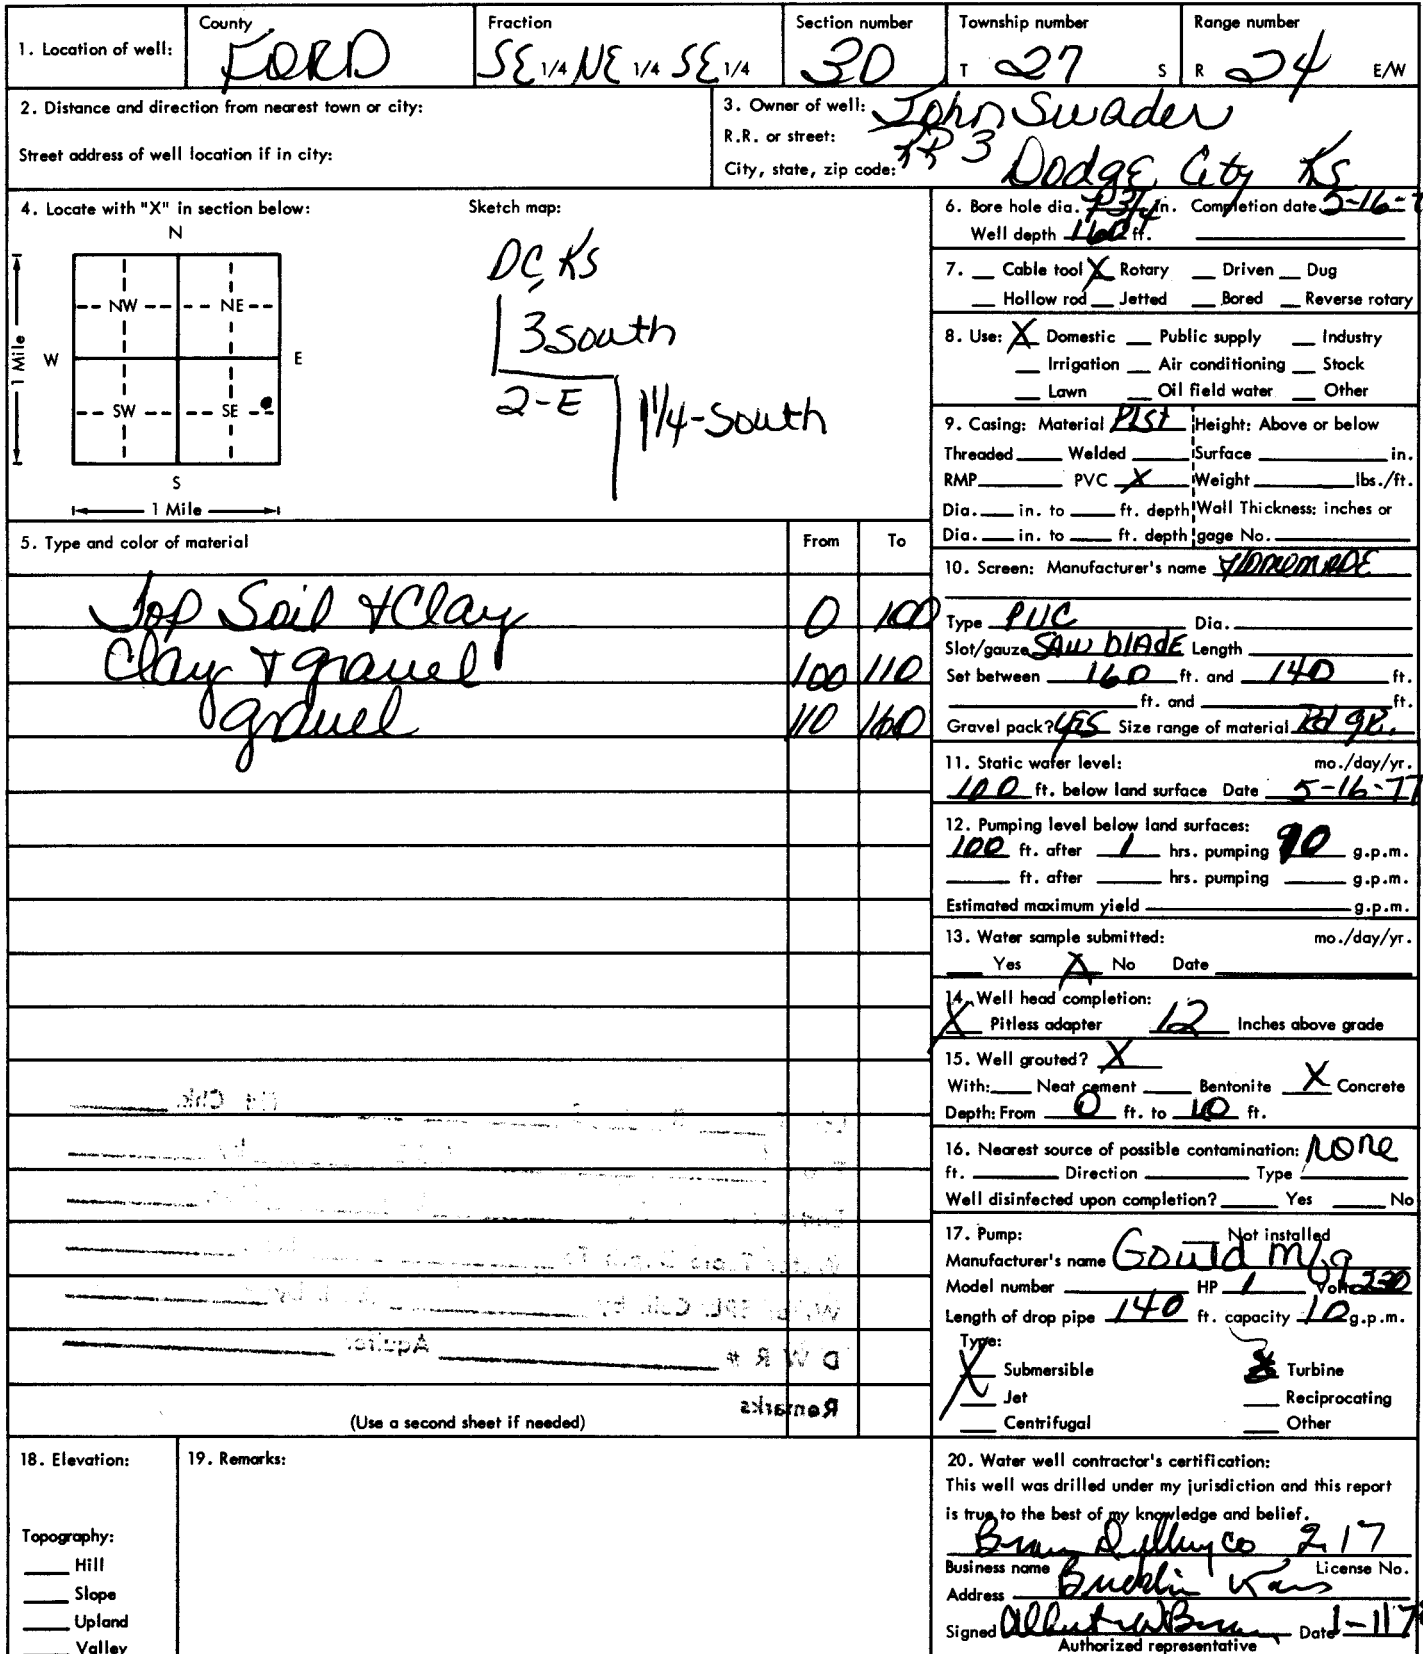 1. Location of well: County FORD Fraction SE 1/4 NE 1/4 SE 1/4 Section number 30 Township number T 27 S Range number R 24 E/W
2. Distance and direction from nearest town or city:
Street address of well location if in city:
3. Owner of well: John Swader
R.R. or street: RR 3
City, state, zip code: Dodge City Ks
4. Locate with "X" in section below:
N
NW NE
W E
SW SE
S
1 Mile
1 Mile
Sketch map:
DC, KS
3 south
2-E
1 1/4-South
5. Type and color of material From To
Top Soil + Clay 0 100
Clay + gravel 100 110
gravel 110 160
(Use a second sheet if needed)
Remarks
D W R # Aquifer
6. Bore hole dia. in. Completion date 5-16-7
Well depth 160 ft.
7. Cable tool X Rotary Driven Dug
Hollow rod Jetted Bored Reverse rotary
8. Use: X Domestic Public supply Industry
Irrigation Air conditioning Stock
Lawn Oil field water Other
9. Casing: Material PLST Height: Above or below
Threaded Welded Surface in.
RMP PVC X Weight lbs./ft.
Dia. in. to ft. depth Wall Thickness: inches or
Dia. in. to ft. depth gage No.
10. Screen: Manufacturer's name HOMEMADE
Type PVC Dia.
Slot/gauze SAW BLADE Length
Set between 160 ft. and 140 ft.
ft. and ft.
Gravel pack? YES Size range of material Rd gR.
11. Static water level: mo./day/yr.
100 ft. below land surface Date 5-16-77
12. Pumping level below land surfaces:
100 ft. after 1 hrs. pumping g.p.m.
ft. after hrs. pumping g.p.m.
Estimated maximum yield g.p.m.
13. Water sample submitted: mo./day/yr.
Yes X No Date
14. Well head completion:
X Pitless adapter 12 Inches above grade
15. Well grouted? X
With: Neat cement Bentonite X Concrete
Depth: From 0 ft. to 10 ft.
16. Nearest source of possible contamination: NONE
ft. Direction Type
Well disinfected upon completion? Yes No
17. Pump: Not installed
Manufacturer's name Gould Mfg
Model number HP 1 Volts 230
Length of drop pipe 140 ft. capacity 10 g.p.m.
Type:
X Submersible Turbine
Jet Reciprocating
Centrifugal Other
18. Elevation:
Topography:
Hill
Slope
Upland
Valley
19. Remarks:
20. Water well contractor's certification:
This well was drilled under my jurisdiction and this report
is true to the best of my knowledge and belief.
Drilling Co 217
Business name License No.
Address Bucklin Kans
Signed Date
Authorized representative